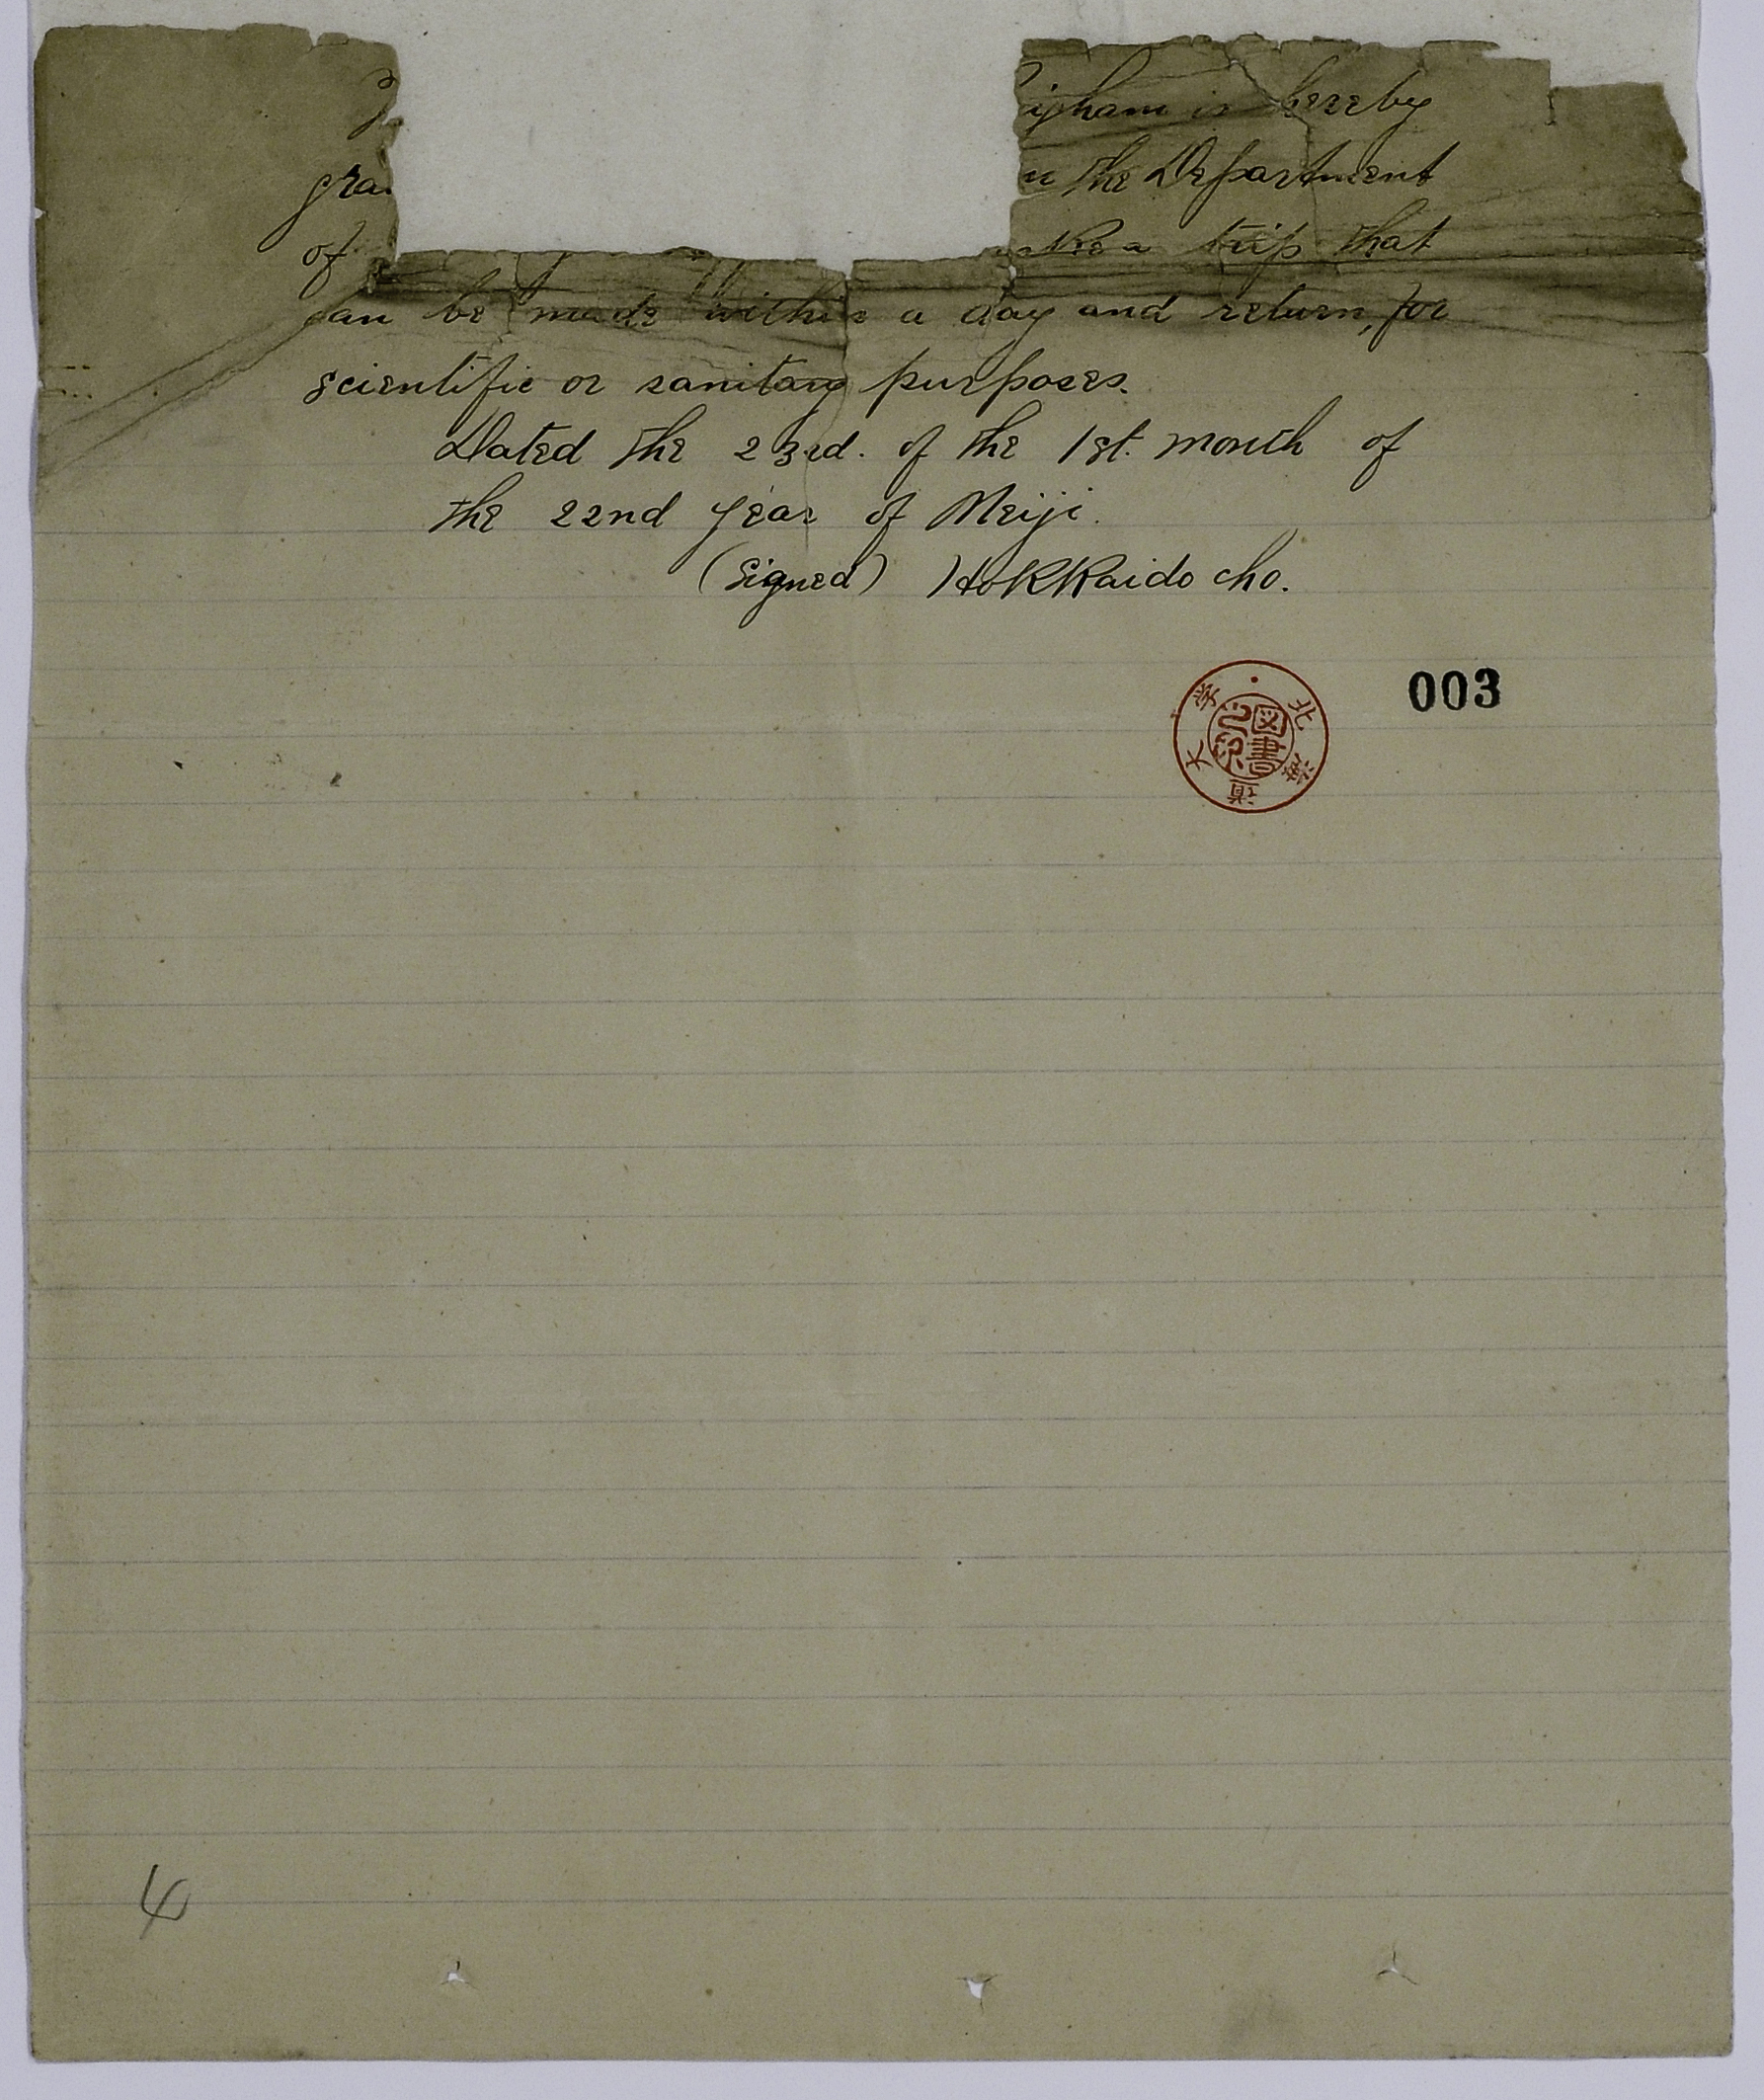 igham is hereby
gra the Department
of a trip that
can be made within a day and return, for
scientific or sanitary purposes.
Dated the 23rd. of the 1st. month of
the 22nd year of Meiji.
(Signed) Hokkaido cho.
003
北海道大学
図書之印
4